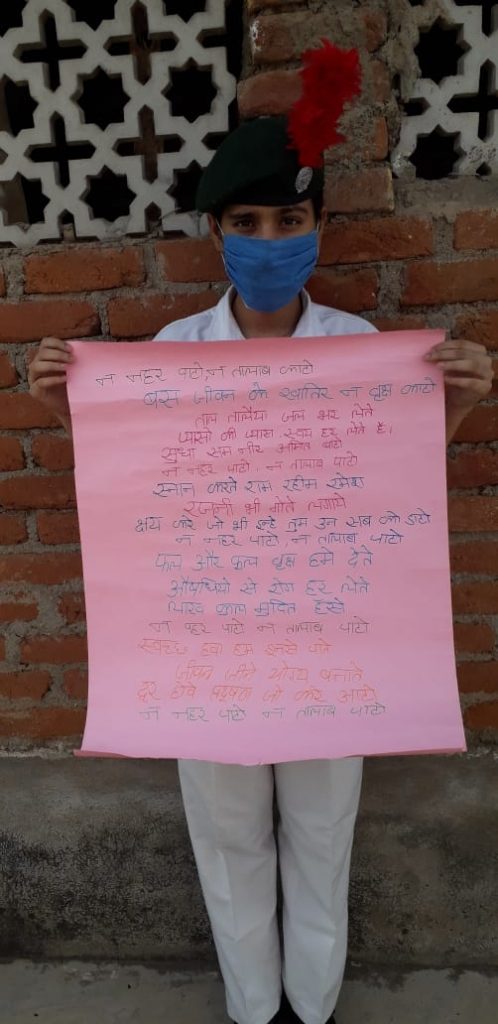 न नहर पाटो, न तालाब पाटो
बस जीवन के खातिर न वृक्ष काटो
ताल तलैया जल भर लेते
प्यासो की प्यास स्वयं हर लेते है।
सुधा सम नीर अमित बाटो
न नहर पाटो, न तालाब पाटो
स्नान करते राम रहीम रमेश
रजनी भी गोते लगाये
क्षय करे जो भी इन्हे तुम उन सब को डाटो
न नहर पाटो, न तालाब पाटो
फल और फूल वृक्ष हमे देते
औषधियो से रोग हर लेते
लाख कुल मुदित हँसे
न नहर पाटो न तालाब पाटो
स्वच्छ हवा हम इनसे पाते
जीवन जीने योग्य बनाते
दूर होवे प्रदूषण जो करे आटो
न नहर पाटो न तालाब पाटो